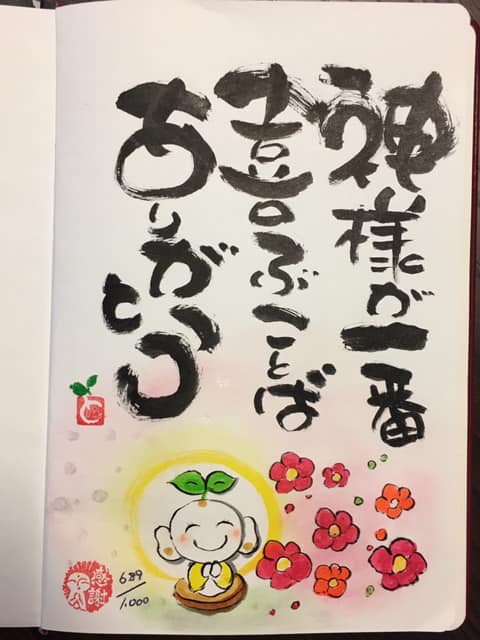 神様が一番
喜ぶことば
ありがとう
と
感謝
689/1,000